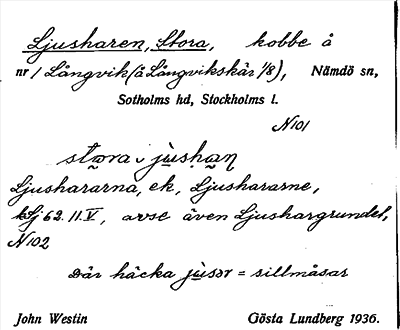 Ljusharen, Stora, kobbe å
nr 1 Långvik (å Långvikskär 1/8), Nämdö sn,
Sotholms hd, Stockholms l.
N101
stora jùshan
Ljushararna, ek, Ljushararne,
Sj 62. II. V, avse även Ljushargrundet,
N102
Där häcka jùsər = sillmåsar
John Westin Gösta Lundberg 1936.